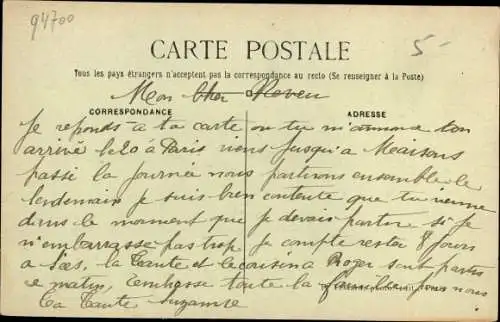 94700
5-
CARTE POSTALE
Tous les pays étrangers n'acceptent pas la correspondance au recto (Se renseigner à la Poste)
Mon Cher Neveu
CORRESPONDANCE
ADRESSE
Je reponds à ta carte ou tu m'annonce ton
arrivé le 20 à Paris viens jusqu'a Maisons
passé la journée nous partirons ensemble le
lendemain je suis bien contente que tu vienne
dans le moment que je devais partir si je
n'embarrasse pas trop je compte rester 8 jours
à la tante et le cousin Roger sont partis
ce matin, embrasse toute la famille pour nous
Ta Tante Suzanne